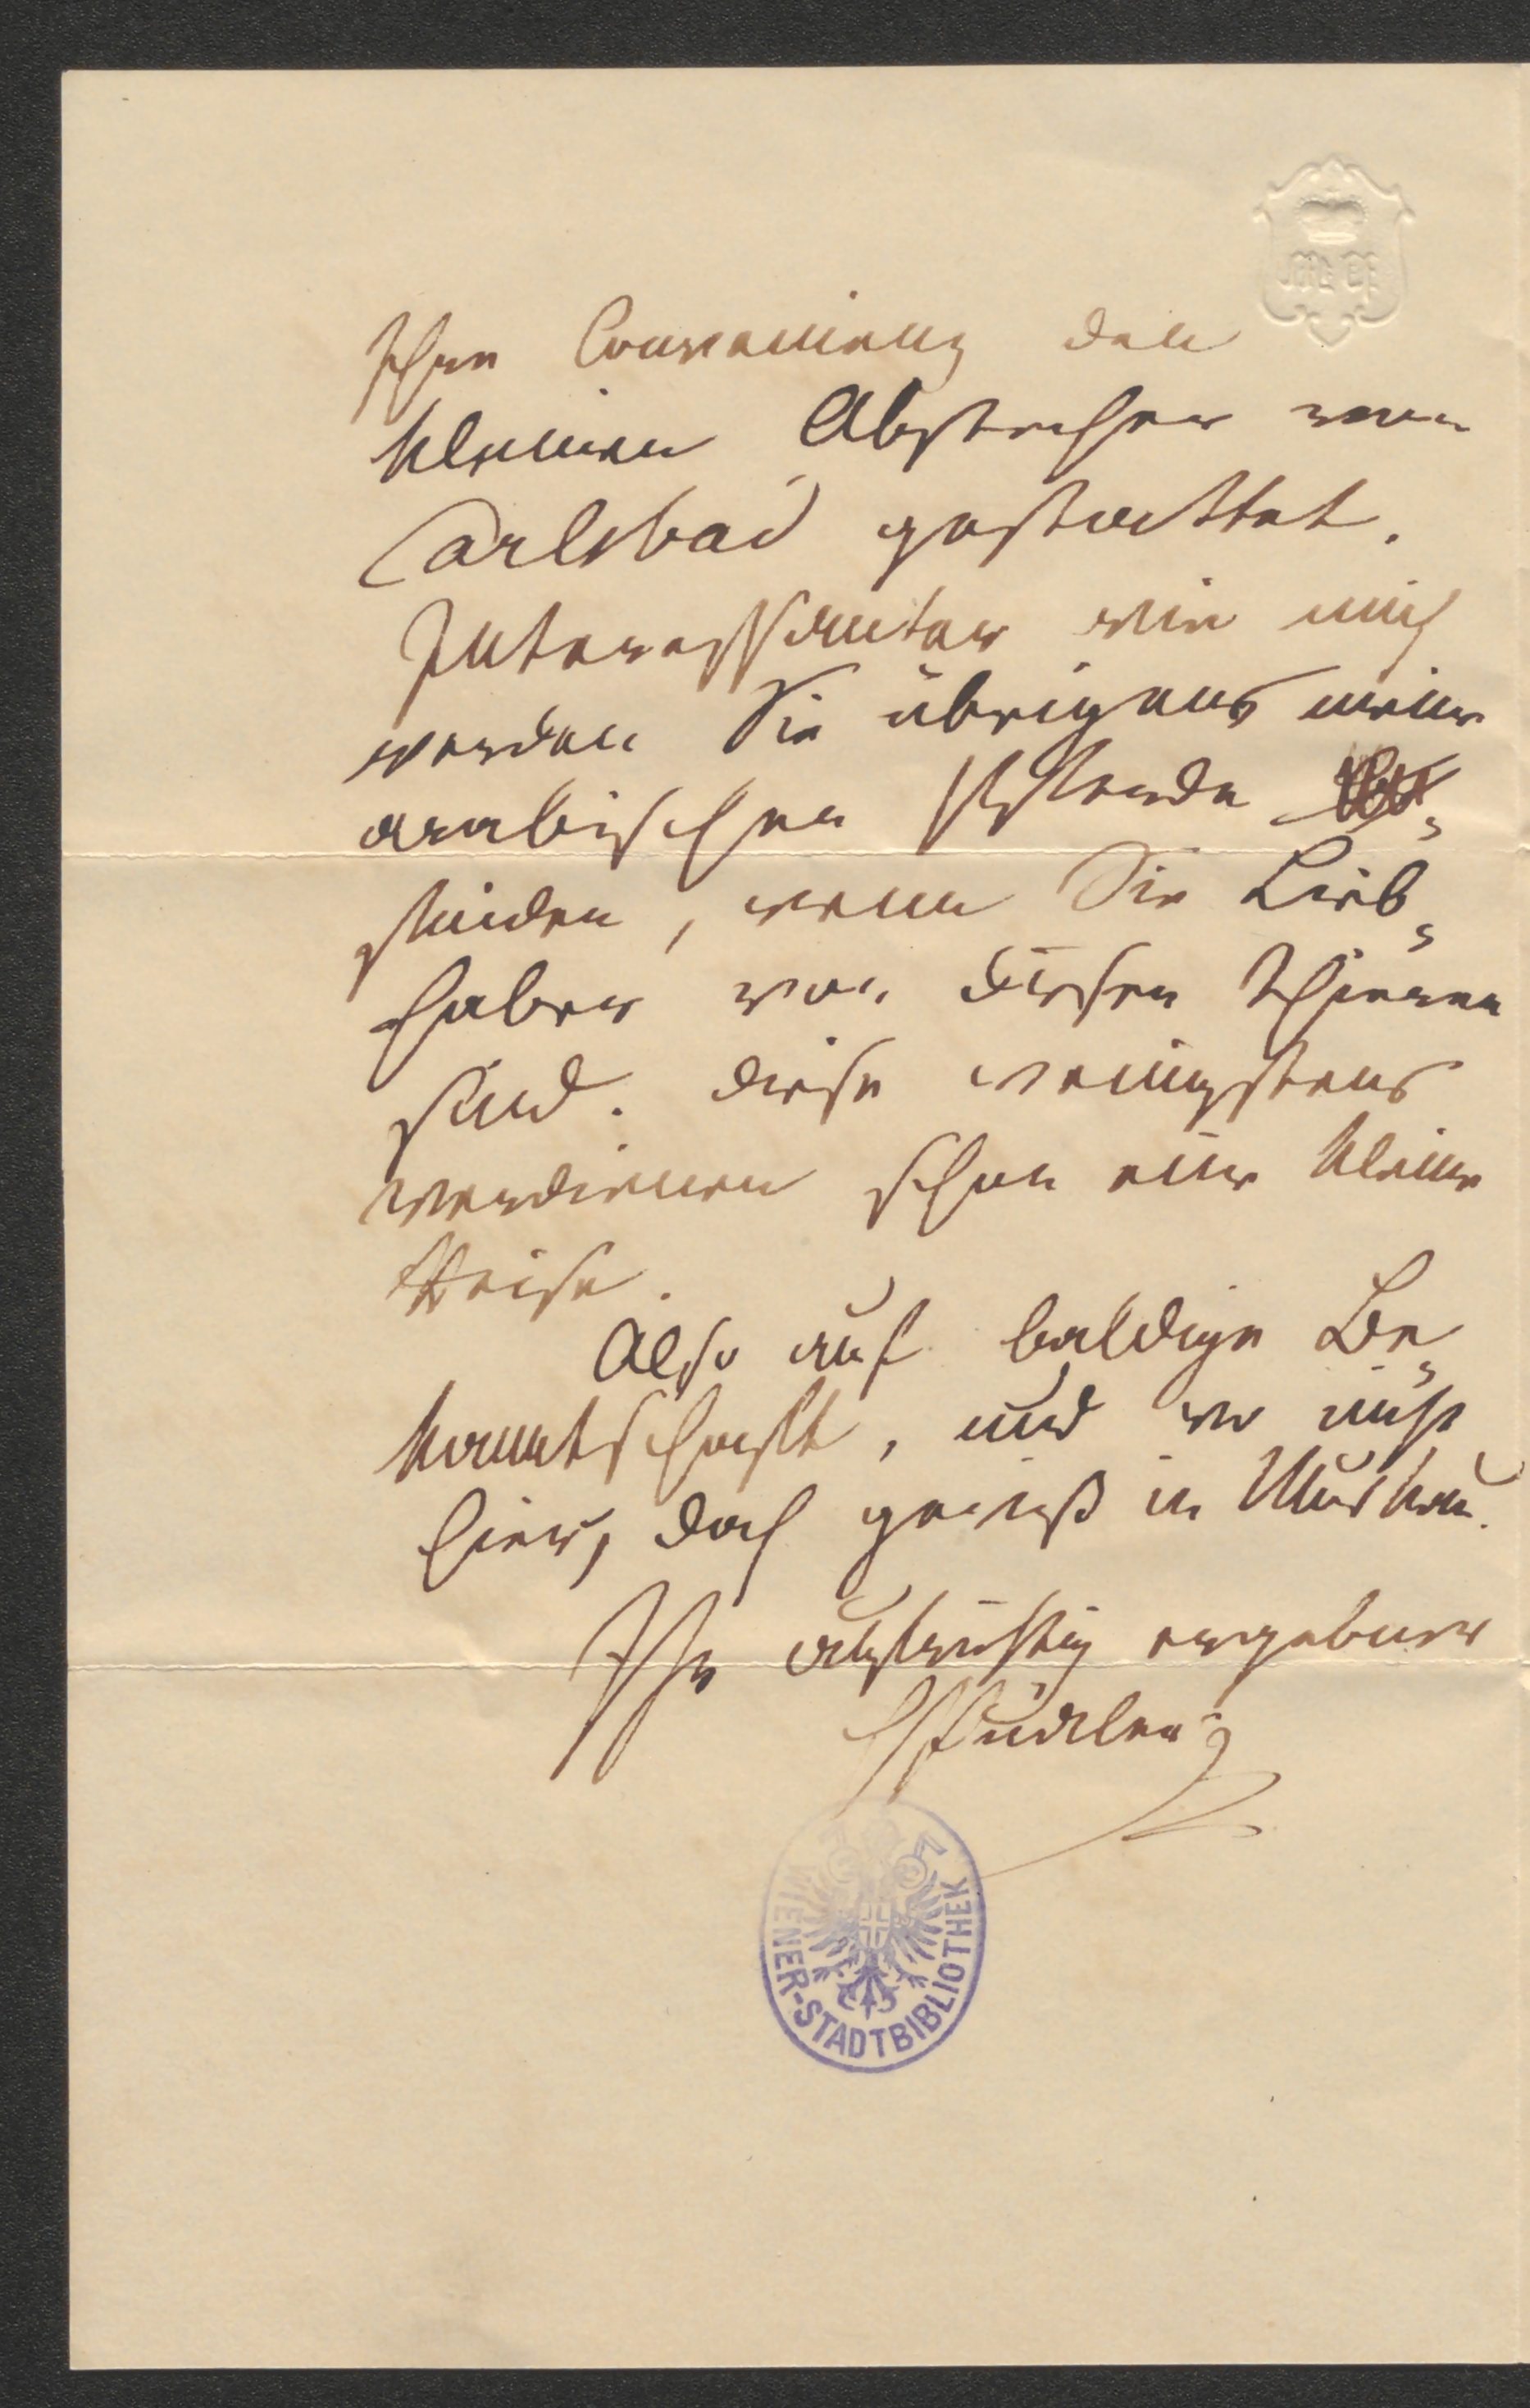 Ihre Convenienz den
kleinen Abstecher von
Carlsbad gestattet.
Interessanter wie mich
werden Sie übrigens meine
arabischen Pferde
finden, wenn Sie Lieb-
haber von diesen Thieren
sind. Diese wenigstens
verdienen schon eine kleine
Reise.
Also auf baldige Be-
kanntschaft, und wo nicht
hier, doch gewiß in Muskau.
Ihr aufrichtig ergebner
HPückler
WIENER-STADTBIBLIOTHEK